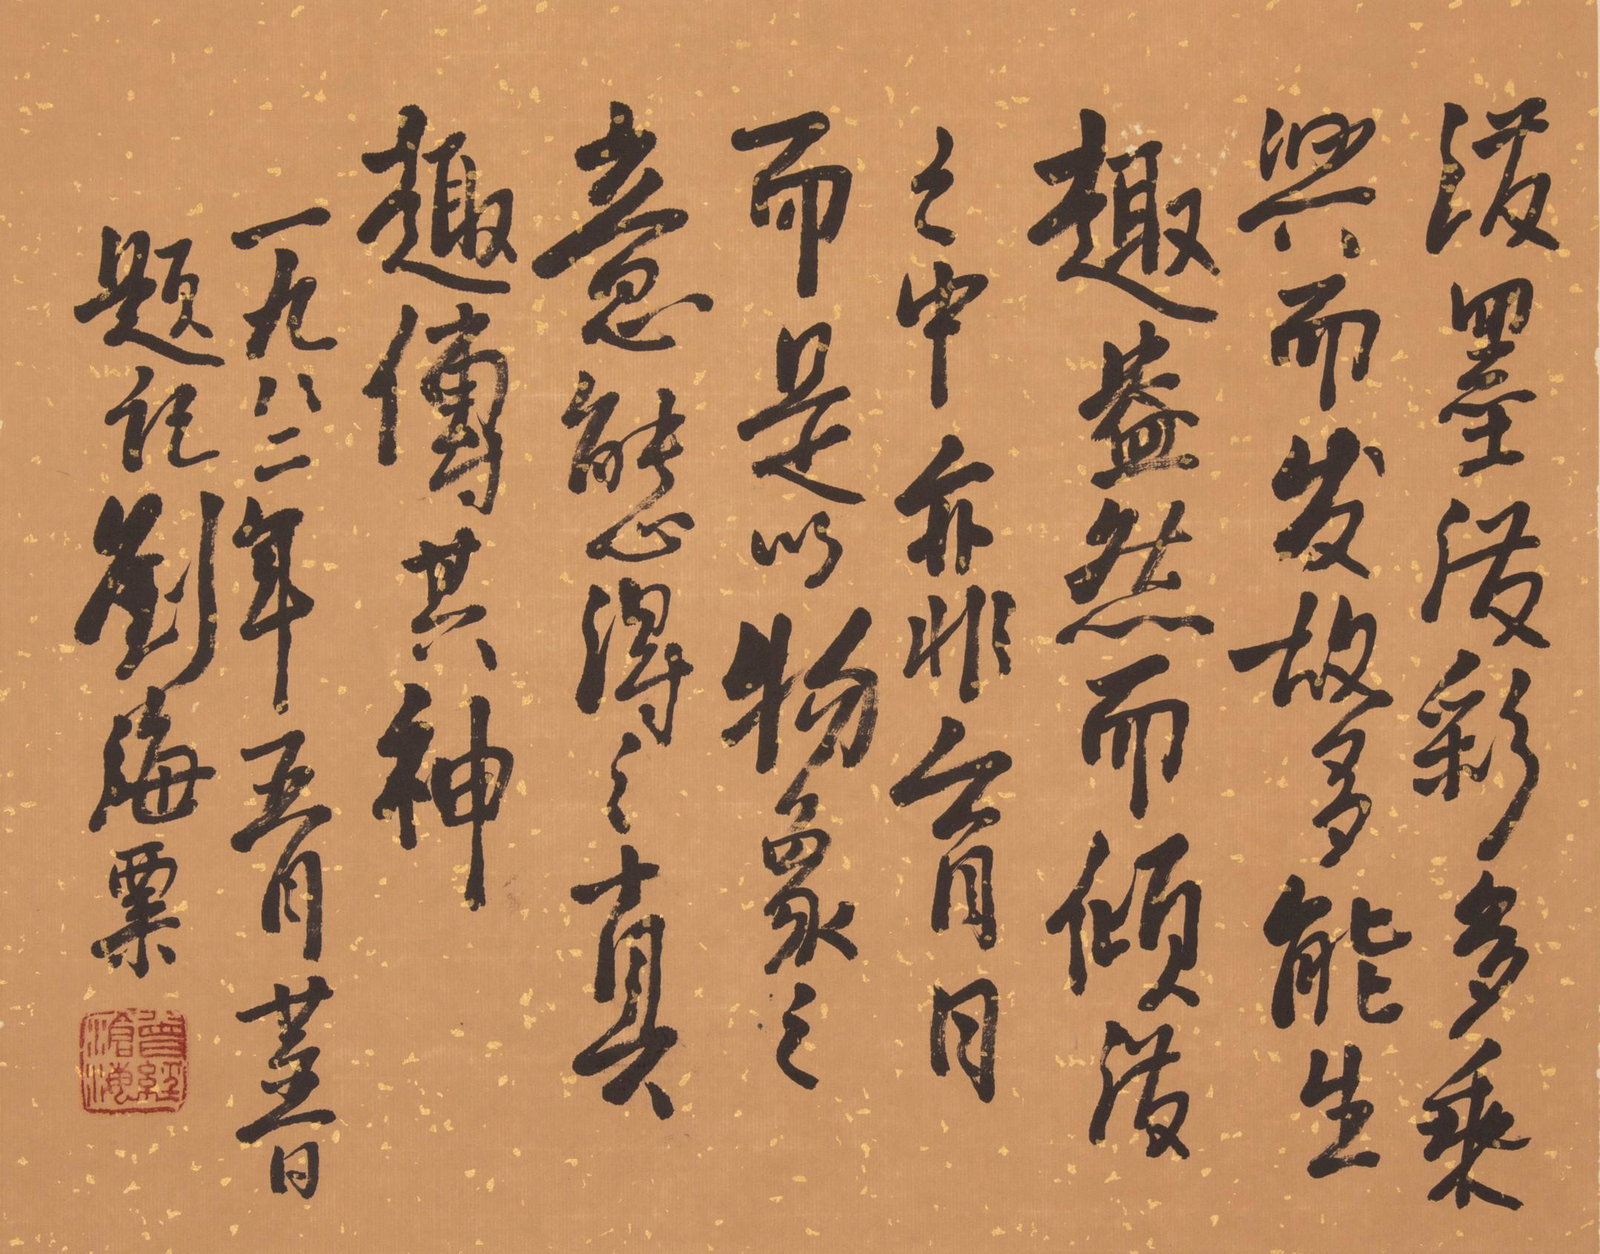 泼墨泼彩多乘
興而发故多能生
趣盎然而傾泼
之中亦非盲目
而是以物象之
意態得之真
趣傳其神
一九八二年五月廿五日
题记劉海粟
曾經滄海